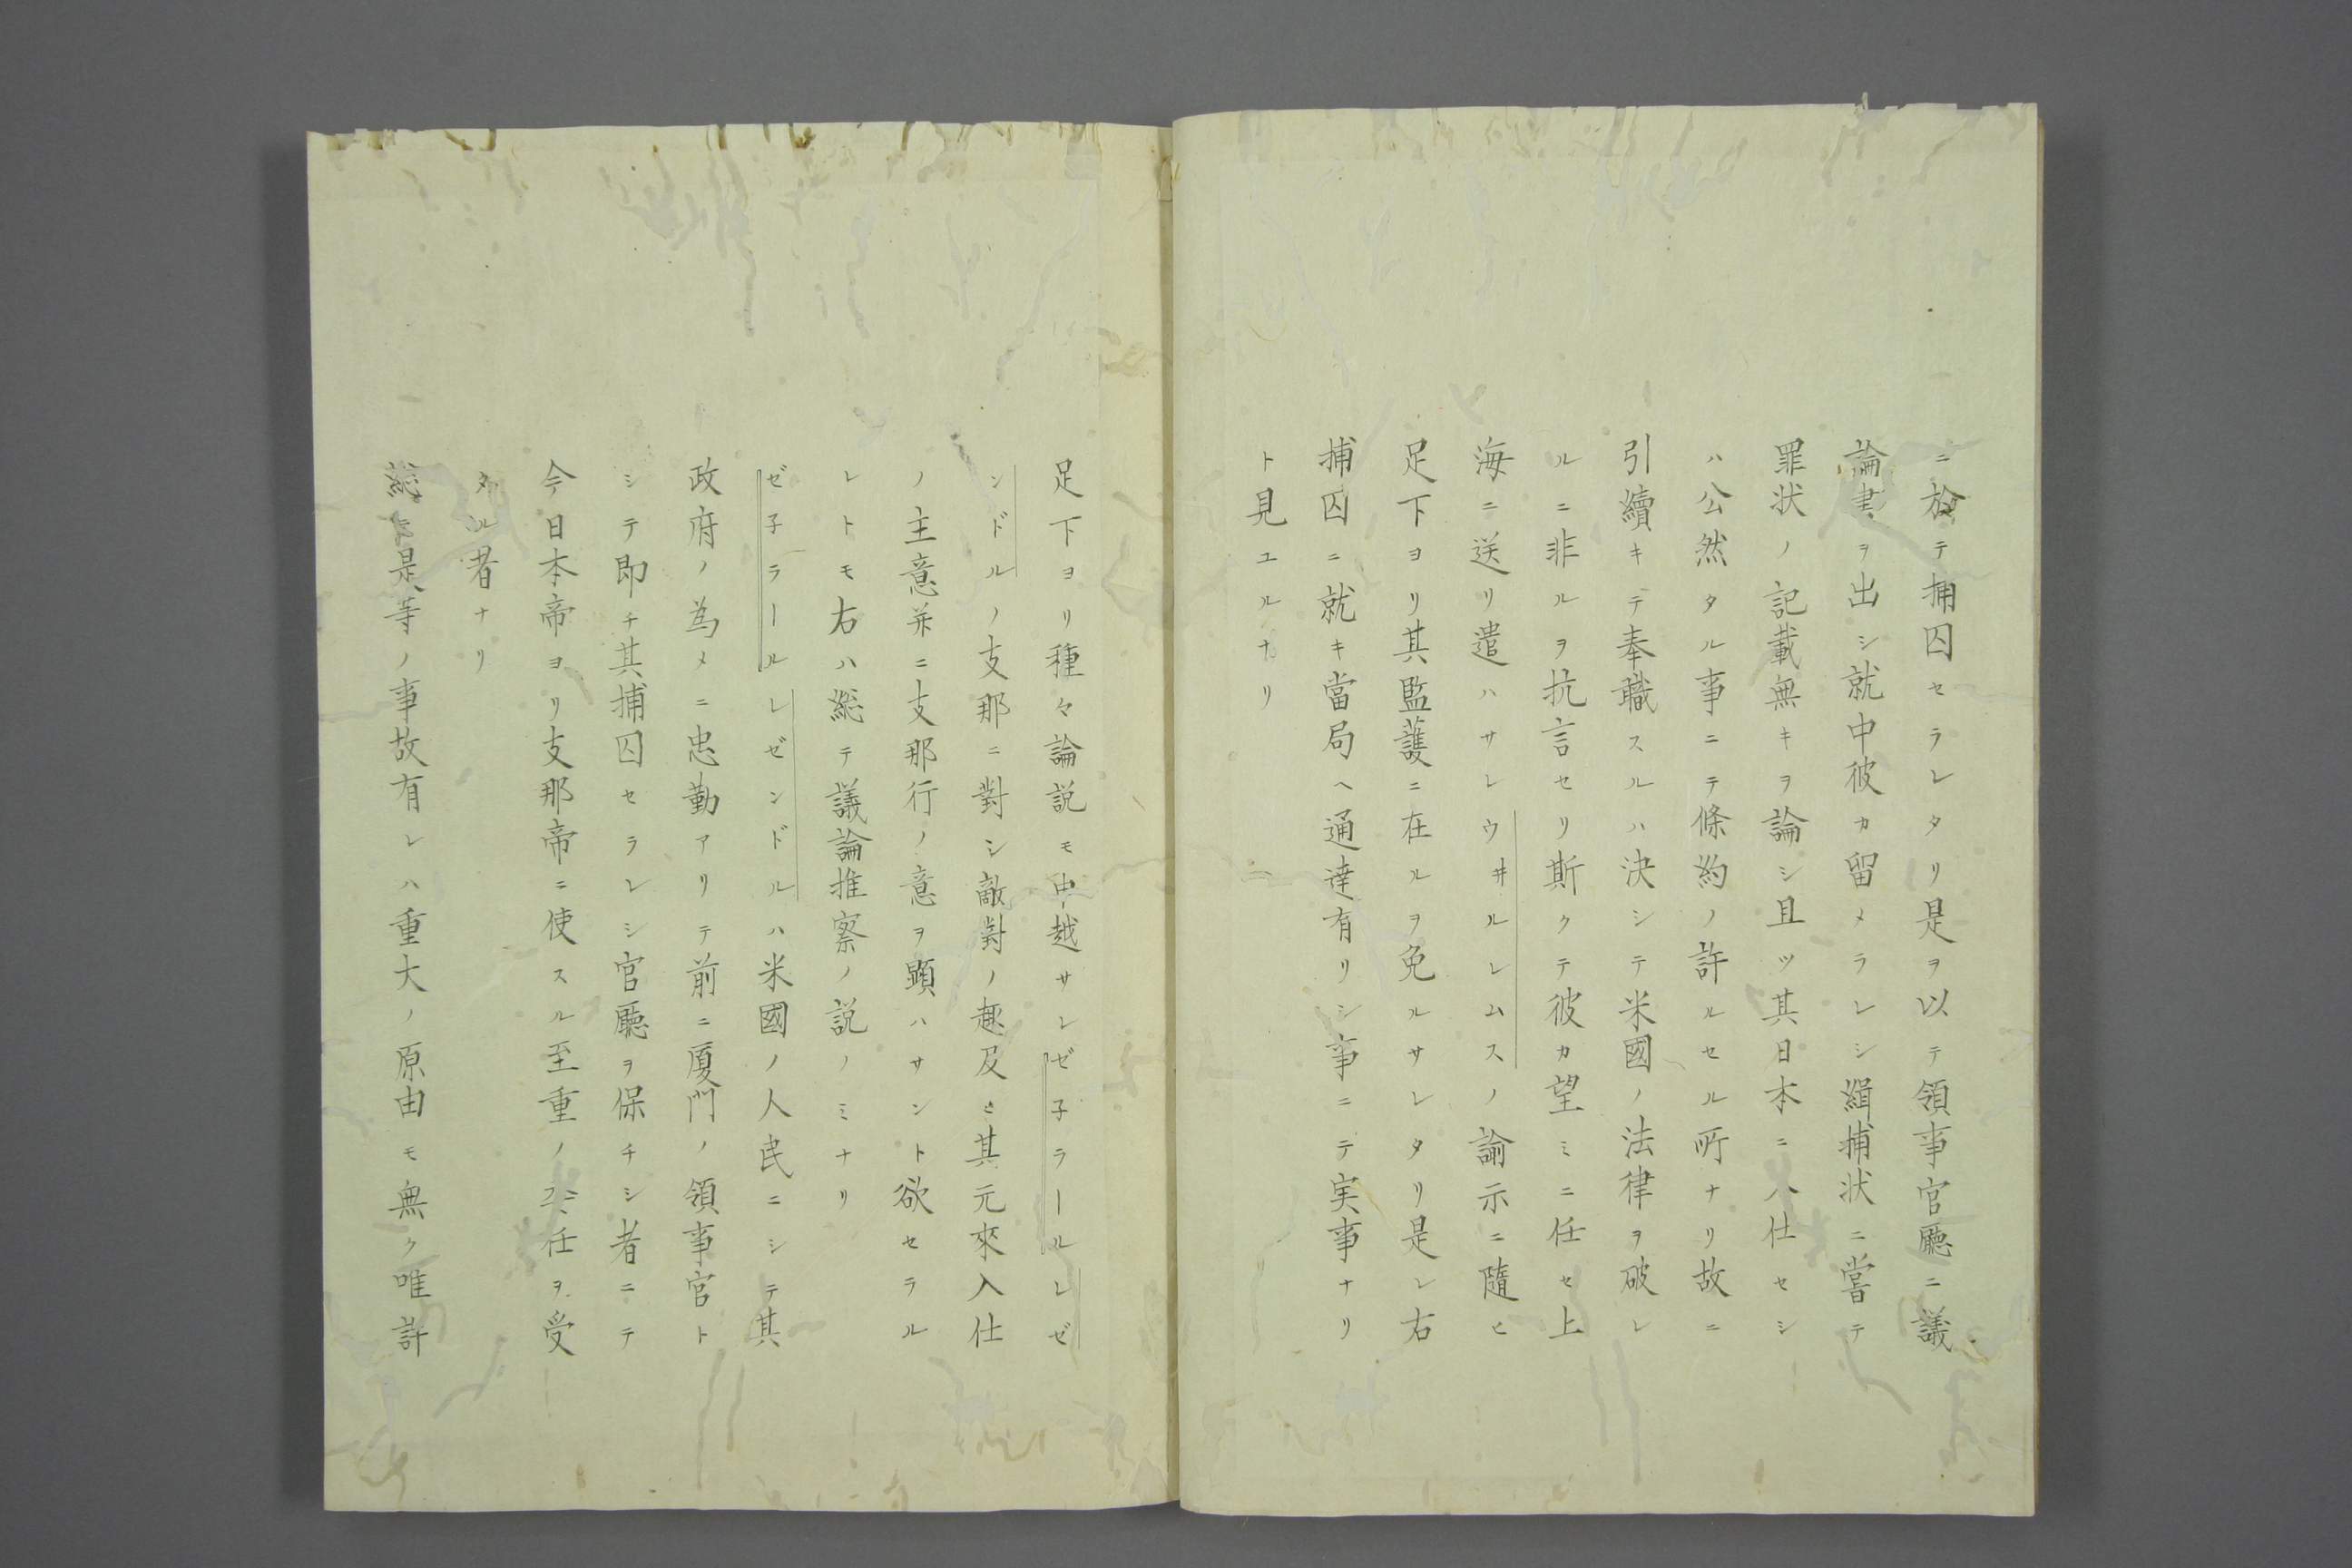 ニ於テ捕囚セラレタリ是ヲ以テ領事官廳ニ議
論書ヲ出シ就中彼カ留メラレシ緝捕状ニ嘗テ
罪状ノ記載無キヲ論シ且ツ其日本ニ入仕セシ
ハ公然タル事ニテ條約ノ許ルセル所ナリ故ニ
引續キテ奉職スルハ決シテ米國ノ法律ヲ破レ
ルニ非ルヲ抗言セリ斯クテ彼カ望ミニ任セ上
海ニ送リ遣ハサレウヰルレムスノ諭示ニ隨ヒ
足下ヨリ其監護ニ在ルヲ免ルサレタリ是レ右
捕囚ニ就キ當局ヘ通達有リシ事ニテ実事ナリ
ト見エルナリ
足下ヨリ種々論説モ申越サレゼ子ラールレゼ
ンドルノ支那ニ對シ敵對ノ趣及ヒ其元來入仕
ノ主意并ニ支那行ノ意ヲ顕ハサント欲セラル
レトモ右ハ総テ議論推察ノ説ノミナリ
ゼ子ラールレゼンドルハ米國ノ人民ニシテ其
政府ノ為メニ忠勤アリテ前ニ厦門ノ領事官ト
シテ即チ其捕囚セラレシ官廳ヲ保チシ者ニテ
今日本帝ヨリ支那帝ニ使スル至重ノ公任ヲ受
タル者ナリ
総テ是等ノ事故有レハ重大ノ原由モ無ク唯許